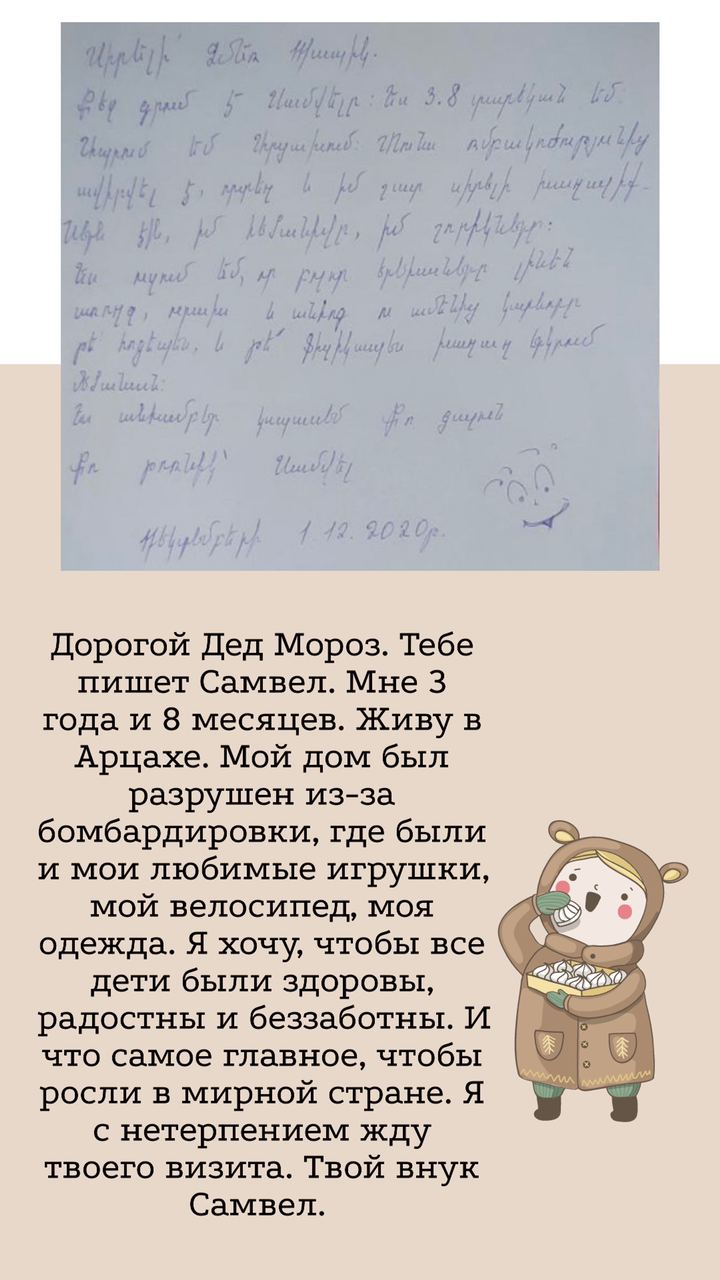 Սիրելի՛ Ձմեռ Պապիկ.
Քեզ գրում է Սամվելը: Ես 3.8 տարեկան եմ:
Ապրում եմ Արցախում: Տունս ռմբակոծությունից
ավիրվել է, որտեղ և իմ շատ սիրելի խաղալիք-
ներն էին, իմ հեծանիվը, իմ շորիկները:
Ես ուզում եմ, որ բոլոր երեխաները լինեն
առողջ, ուրախ և անհոգ ու ամենից կարևորը
թե՛ հոգեպես, և թե՛ ֆիզիկապես խաղաղ երկրում
մեծանան:
Ես անհամբեր կսպասեմ Քո գալուն
Քո թոռնիկ՝ Սամվել
Դեկտեմբերի 1.12.2020թ.
Дорогой Дед Мороз. Тебе
пишет Самвел. Мне 3
года и 8 месяцев. Живу в
Арцахе. Мой дом был
разрушен из-за
бомбардировки, где были
и мои любимые игрушки,
мой велосипед, моя
одежда. Я хочу, чтобы все
дети были здоровы,
радостны и беззаботны. И
что самое главное, чтобы
росли в мирной стране. Я
с нетерпением жду
твоего визита. Твой внук
Самвел.